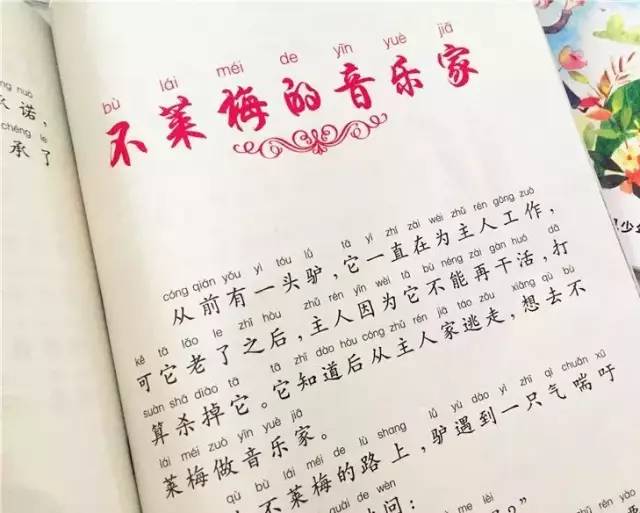 nuò
诺，
chéng le
承了
bù lái méi de yīn yuè jiā
不莱梅的音乐家
cóng qián yǒu yì tóu lǘ tā yì zhí zài wèi zhǔ rén gōng zuò
从前有一头驴，它一直在为主人工作，
kě tā lǎo le zhī hòu zhǔ rén yīn wèi tā bù néng zài gàn huó dǎ
可它老了之后，主人因为它不能再干活，打
suàn shā diào tā tā zhī dào hòu cóng zhǔ rén jiā táo zǒu xiǎng qù bù
算杀掉它。它知道后从主人家逃走，想去不
lái méi zuò yīn yuè jiā
莱梅做音乐家。
qù bù lái méi de lù shang lǘ yù dào yì zhī qì chuǎn xū
去不莱梅的路上，驴遇到一只气喘吁
guài de wèn
问：